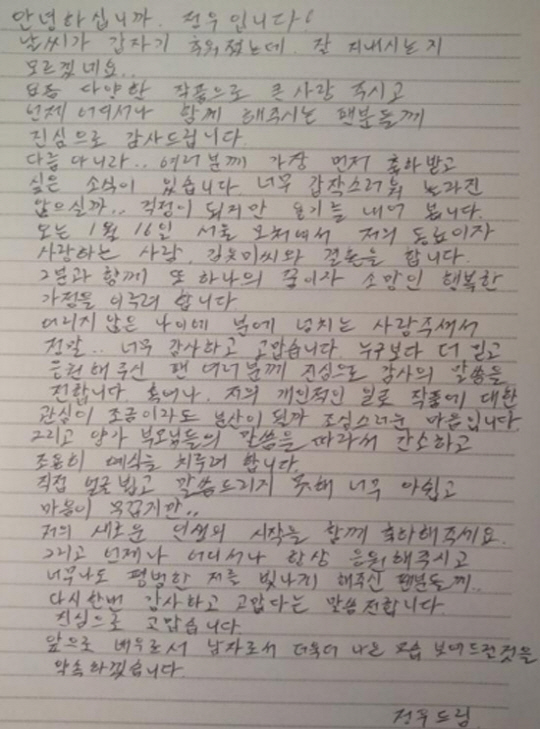 안녕하십니까. 정우입니다!
날씨가 갑자기 추워졌는데. 잘 지내시는지
모르겠네요..
요즘 다양한 작품으로 큰 사랑 주시고
언제 어디서나 함께 해주시는 팬분들께
진심으로 감사드립니다.
다름 아니라.. 여러분께 가장 먼저 축하받고
싶은 소식이 있습니다. 너무 갑작스러워 놀라진
않으실까.. 걱정이 되지만 용기를 내어 봅니다.
오는 1월 16일 서울 모처에서 저의 동료이자
사랑하는 사람, 김유미씨와 결혼을 합니다.
그분과 함께 또 하나의 꿈이자 소망인 행복한
가정을 이루려 합니다
어리지 않은 나이에 분에 넘치는 사랑주셔서
정말.. 너무 감사하고 고맙습니다. 누구보다 더 믿고
응원해주신 팬 여러분께 진심으로 감사의 말씀을
전합니다. 혹여나, 저의 개인적인 일로 작품에 대한
관심이 조금이라도 분산이 될까 조심스러운 마음입니다.
그리고 양가 부모님들의 말씀을 따라서 간소하고
조용히 예식을 치루려 합니다.
직접 얼굴 뵙고 말씀드리지 못해 너무 아쉽고
마음이 무겁지만..
저의 새로운 인생의 시작을 함께 축하해주세요.
그리고 언제나 어디서나 항상 응원해주시고
너무나도 평범한 저를 빛나게 해주신 팬분들께..
다시한번 감사하고 고맙다는 말씀 전합니다.
진심으로 고맙습니다
앞으로 배우로서 남자로서 더욱더 나은 모습 보여드릴것을
약속하겠습니다.
정우드림